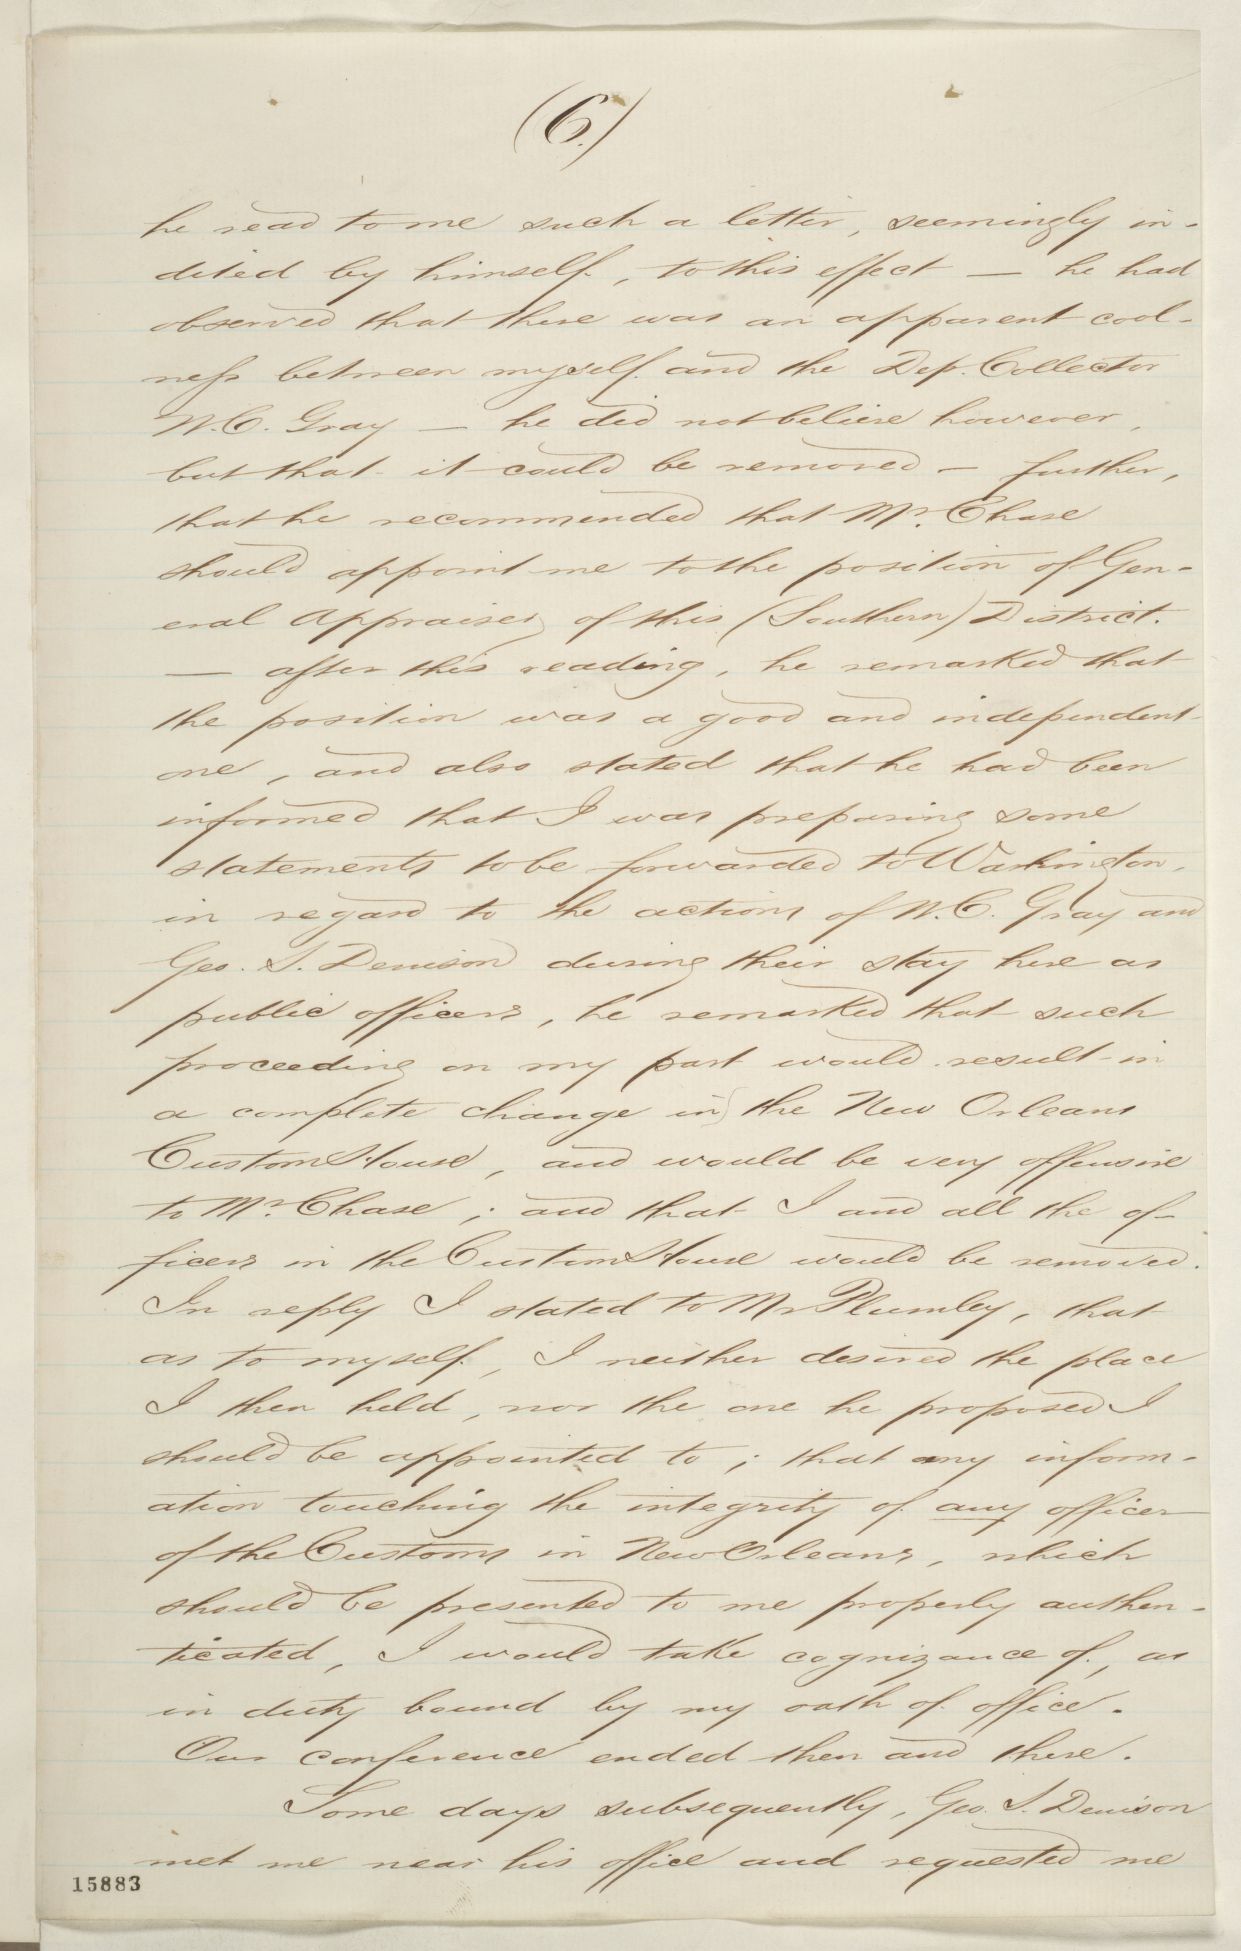 (6.)
he read to me such a letter, seemingly in-
dited by himself, to this effect — he had
observed that there was an apparent cool-
ness between myself and the Dep. Collector
W.C. Gray — he did not believe however,
but that it could be removed — further,
that he recommended that Mr. Chase
should appoint me to the position of Gen-
eral Appraiser of this (Southern) District.
— after this reading, he remarked that
the position was a good and independent
one, and also stated that he had been
informed that I was preparing some
statements to be forwarded to Washington,
in regard to the actions of W.C. Gray and
Geo. S. Denison during their stay here as
public officers, he remarked that such
proceeding on my part would result in
a complete change in the New Orleans
Custom House, and would be very offensive
to Mr. Chase; and that I and all the of-
ficers in the Custom House would be removed.
In reply I stated to Mr Plumley, that
as to myself, I neither desired the place
I then held, nor the one he proposed I
should be appointed to; that any inform-
ation touching the integrity of any officer
of the Customs in New Orleans, which
should be presented to me properly authen-
ticated, I would take cognizance of, as
in duty bound by my oath of office.
Our conference ended then and there.
Some days subsequently, Geo. S. Denison
met me near his office and requested me
15883